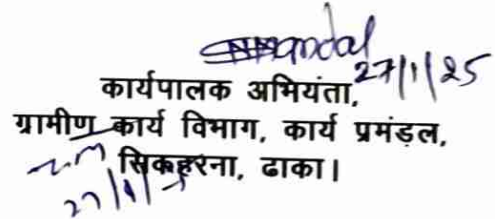 27/1/25
कार्यपालक अभियंता,
ग्रामीण कार्य विभाग, कार्य प्रमंडल,
सिकहरना, ढाका।